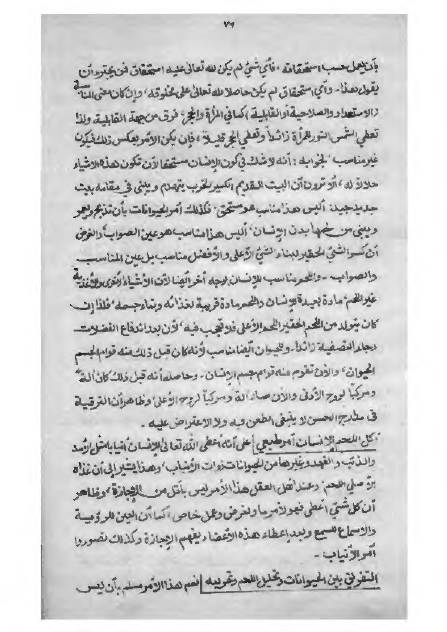 ٧٩
بأن يعمل حسب استحقاقه، فأي شيء لم يكن لله تعالى عليه استحقاق فمن يجترء أن
يقول هذا۔ وأي استحقاق لم يكن حاصلا لله تعالى على مخلوقه، وإن كان معنى المناسبة
الاستعداد والصلاحية أو القابلية، كما في المرأة والحجر، فرق من جهة القابلية، ولذا
تعطي الشمس النور للمرأة زائداً وتعطي الحجر قليلاً، فإن يكن الأمر بعكس ذلك فيكون
غير مناسب، فجوابه: أنه لا شك في كون الإنسان مستحقا لأن تكون هذه الأشياء
حلالا له، ألا ترون أن البيت القديم الكسير الخرب يتهدم ويبنى في مقامه بيت
جديد جيد، أليس هذا مناسب هو مستحق، فكذلك أمر الحيوانات بأن تذبح
ويبنى من لحمها بدن الإنسان، أليس هذا مناسب هو عين الصواب، والغرض
أن كسر الشيء الحقير لبناء الشيء الأعلى والأفضل مناسب بل عين المناسب
والصواب۔ واللحم مناسب للإنسان لوجه آخر أيضا لأن الأشياء الأخرى والأغذية
غير اللحم، مادة بعيدة للإنسان واللحم مادة قريبة لغذائه وبناء جسمه، فلذا إن
كان يتولد من اللحم الحقير اللحم الأعلى فلا تعجب فيه، لأن بعد اندفاع الفضلات
وجاء التصفية زائدا۔ وللحيوان أيضا مناسب لأنه كان قبل ذلك منه قوام الجسم
الحيواني، والآن تقوم منه قوام جسم الإنسان۔ وحاصله أنه قبل ذلك كان آلة
ومركبا لروح الأدنى والآن صار آلة ومركبا لروح الأعلى، وظاهر أن الترقية
في مدارج الحسن لا ينبغي الطعن فيه ولا الاعتراض عليه۔
أكل اللحم للإنسان أمر طبعي | على أنه أعطى الله تعالى للإنسان أنيابا مثل الأسد
والذئب والفهد وغيرها من الحيوانات ذوات الأنياب، وهذا يشير إلى أن غذاءه
الأصلي اللحم، وعند أهل العقل هذا الأمر ليس بأقل من الإجازة، وظاهر
أن كل شيء أعطي فهو لأمر ما ولغرض وعمل خاص، كما أن العين للرؤية
والأسماع للسمع وبعد إعطاء هذه الأعضاء يفهم الإجازة وكذلك تصوروا
أمر الأنياب۔
التفريق بين الحيوانات وتحليل اللحم وتحريمه | نعم هذا الأمر مسلم بأن ليس